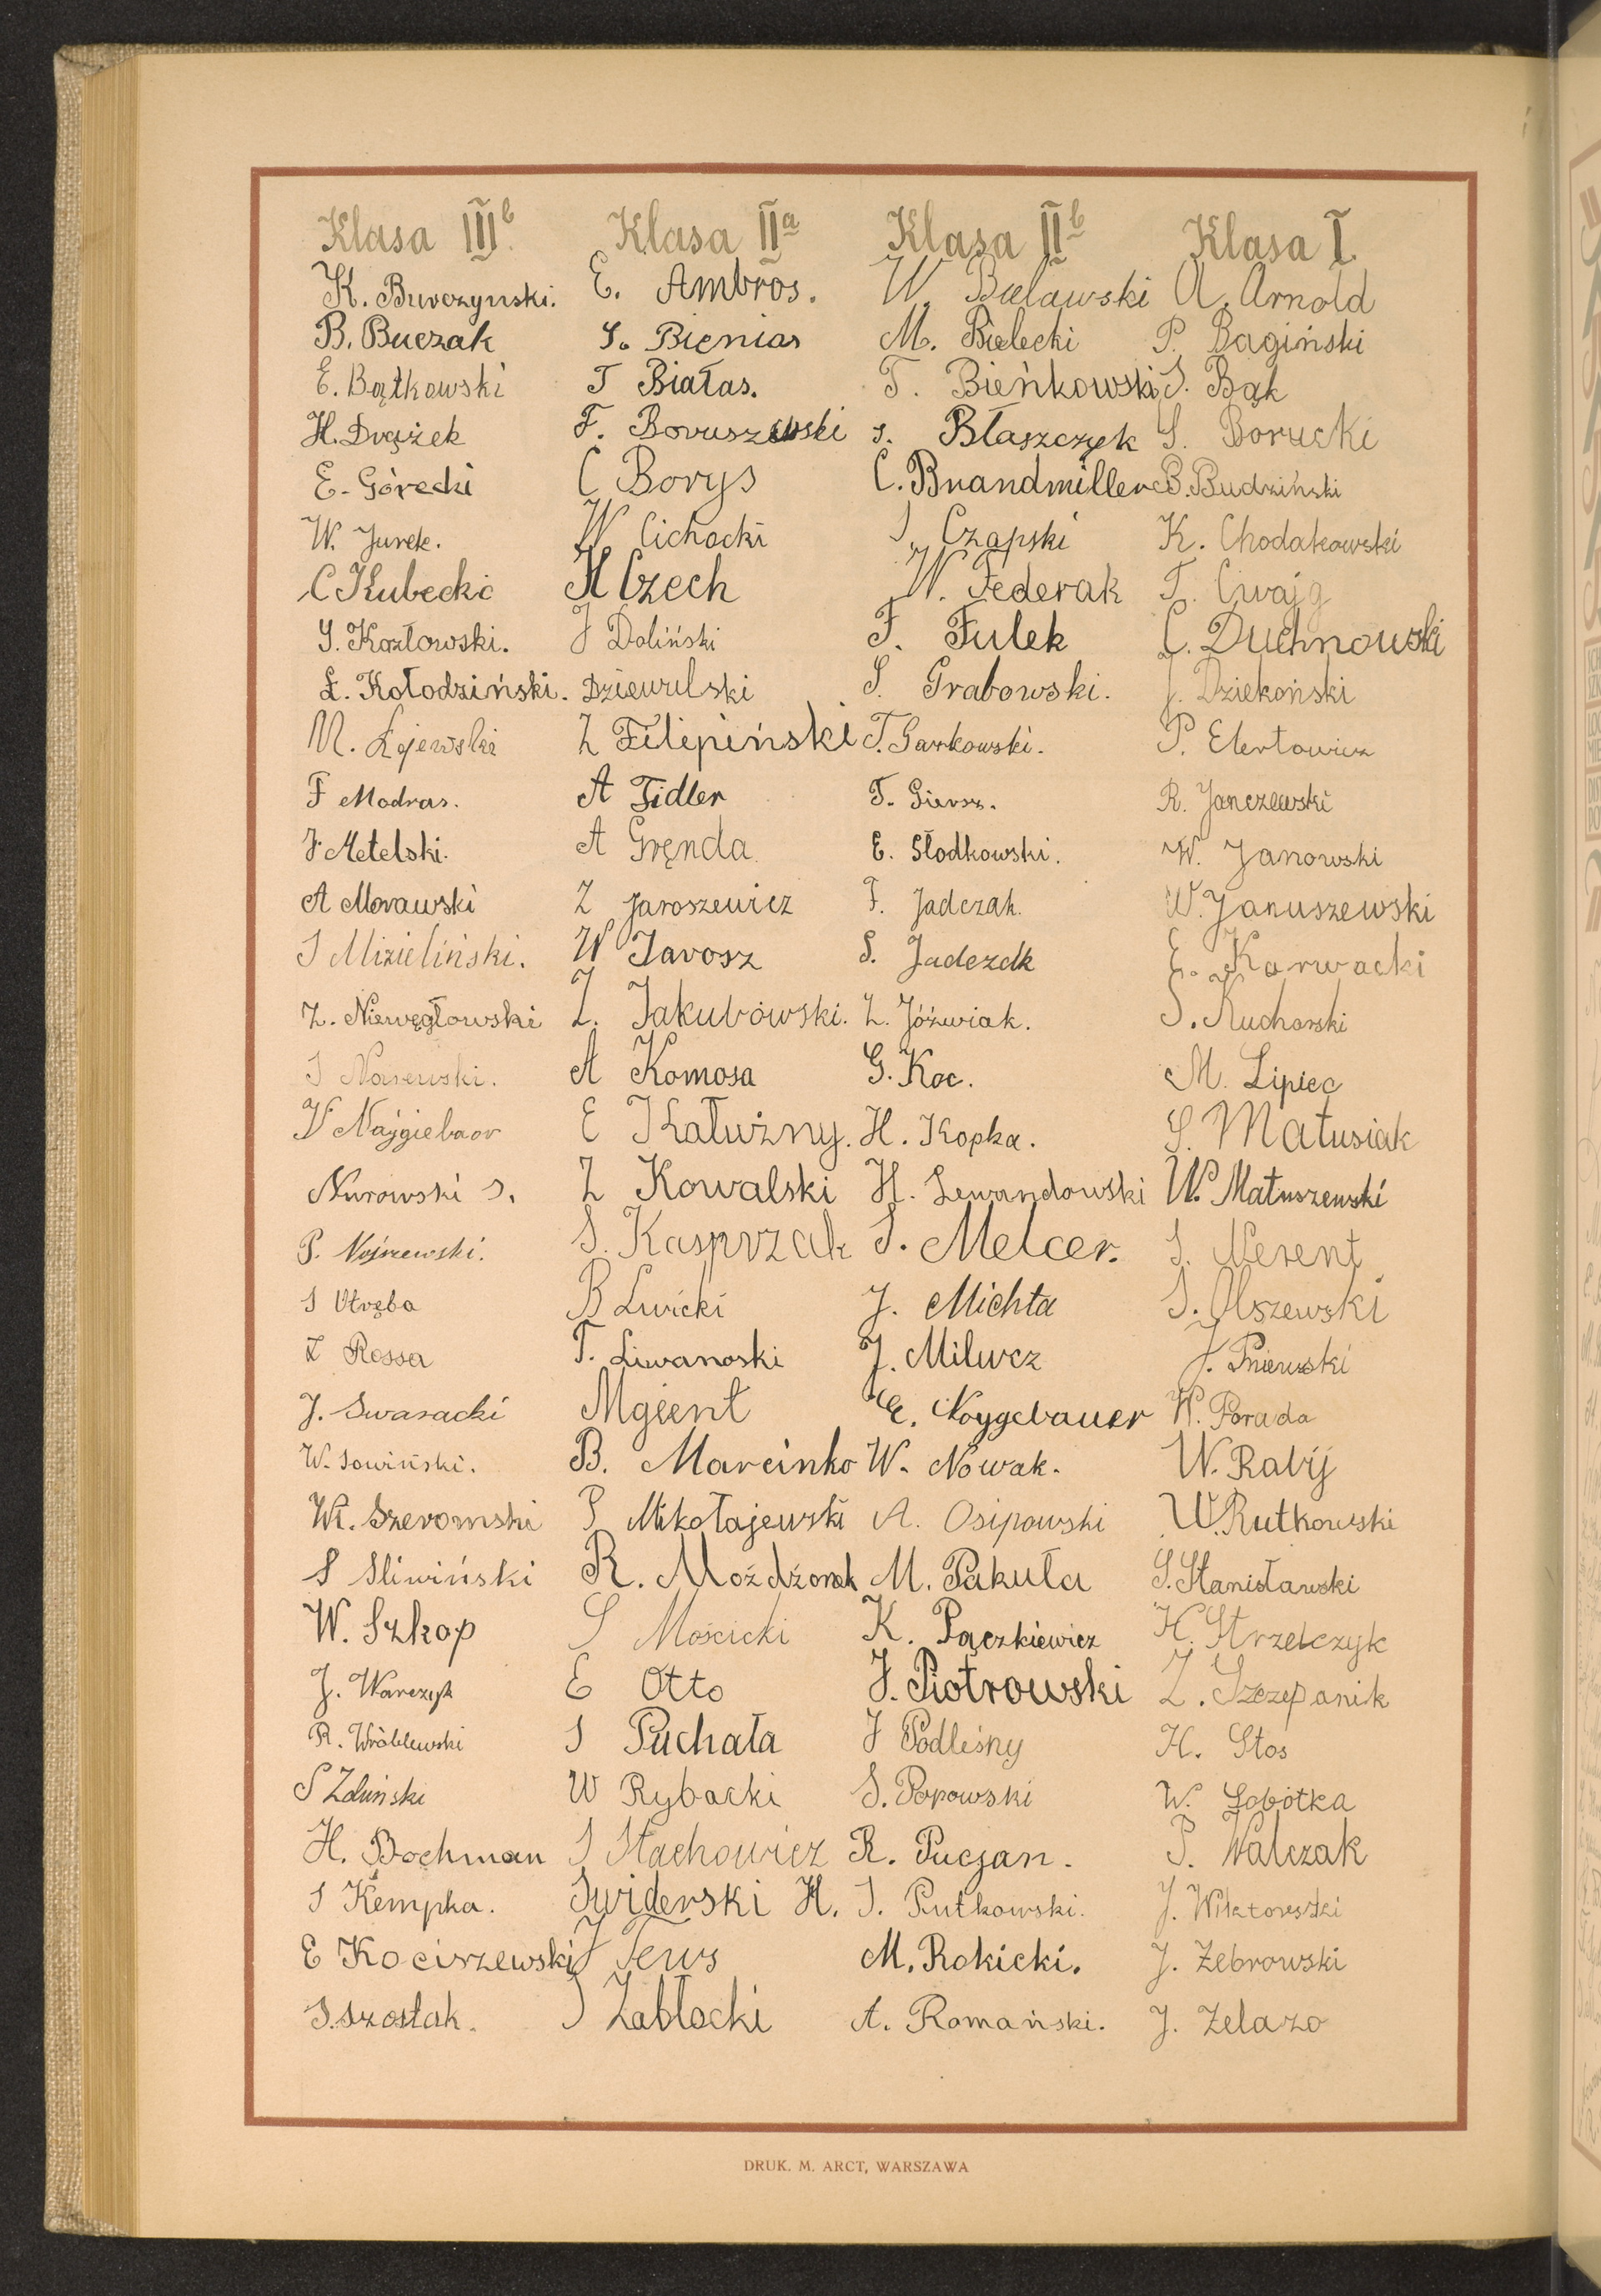 Klasa III b.
K. Burczynski.
B. Buczak
E. Bątkowski
H. Drążek
E. Górecki
W. Jurek.
C Kubecki
S. Kozłowski.
Ł. Kołodziński.
M. Łajewski
F Modras.
F. Metelski.
A Morawski
S Mizieliński.
Z. Niewęgłowski
S Nasewski.
W Najgiebaor
Nurowski S.
P. Nojszewski.
S Otręba
Z Rossa
J. Swaracki
W. Sowiński.
Wł. Szeromski
S Sliwiński
W. Szkop
J. Warczyk
R. Wróblewski
S Zduński
H. Bochman
S Kempka.
E Kociszewski
S. Szostak.
Klasa II a
E. Ambros.
S. Bienias
T Białas.
F. Boruszewski
C Borys
W Cichocki
H Czech
J Doliński
Dziewulski
Z Filipiński
A Fidler
A Gręnda
Z Jaroszewicz
W Jarosz
Z. Jakubowski.
A Komosa
E Kałużny.
Z Kowalski
S. Kasprzak
B Lwicki
T. Liwanoski
Mgient
B. Marcinko
P Mikołajewski
R. Możdżonek
S Mościcki
E Otto
S Puchała
W Rybacki
S Stachowicz
Swiderski H.
J Tews
J Zabłocki
Klasa II b
W. Bielawski
M. Bielecki
T. Bieńkowski
S. Błaszczyk
C. Brandmiller
S. Czapski
W. Federak
F. Fulek
S. Grabowski.
T. Garkowski.
T. Giersz.
E. Słodkowski.
F. Jadczak.
S. Jadczak
Z. Jóźwiak.
G. Koc.
H. Kopka.
H. Lewandowski
S. Melcer.
J. Michta
J. Milwcz
E. Noygebauer
W. Nowak.
A. Osipowski
M. Pakuła
K. Pączkiewicz
J. Piotrowski
J Podleśny
S. Popowski
R. Pucjan.
S. Rutkowski.
M. Rokicki.
A. Romański.
Klasa I.
A. Arnold
P. Bagiński
S. Bąk
S. Borucki
B. Budziński
K. Chodakowski
T. Cwajg
C. Duchnowski
J. Dziekoński
P. Elertowicz
R. Janczewski
W. Janowski
W. Januszewski
E. Karwacki
S. Kucharski
M. Lipiec
S. Matusiak
W. Matuszewski
S. Nerent
S. Olszewski
J. Pniewski
W. Porada
W. Rabij
W. Rutkowski
S. Stanisławski
H. Strzelczyk
Z. Szczepanik
H. Stos
W. Sobótka
P. Walczak
J. Wiktorowski
J. Żebrowski
J. Żelazo
DRUK. M. ARCT, WARSZAWA